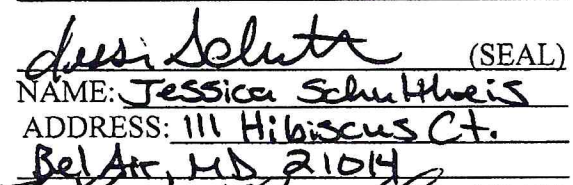 (SEAL)
NAME: Jessica Schultheis
ADDRESS: 111 Hibiscus Ct.
Bel Air, MD 21014